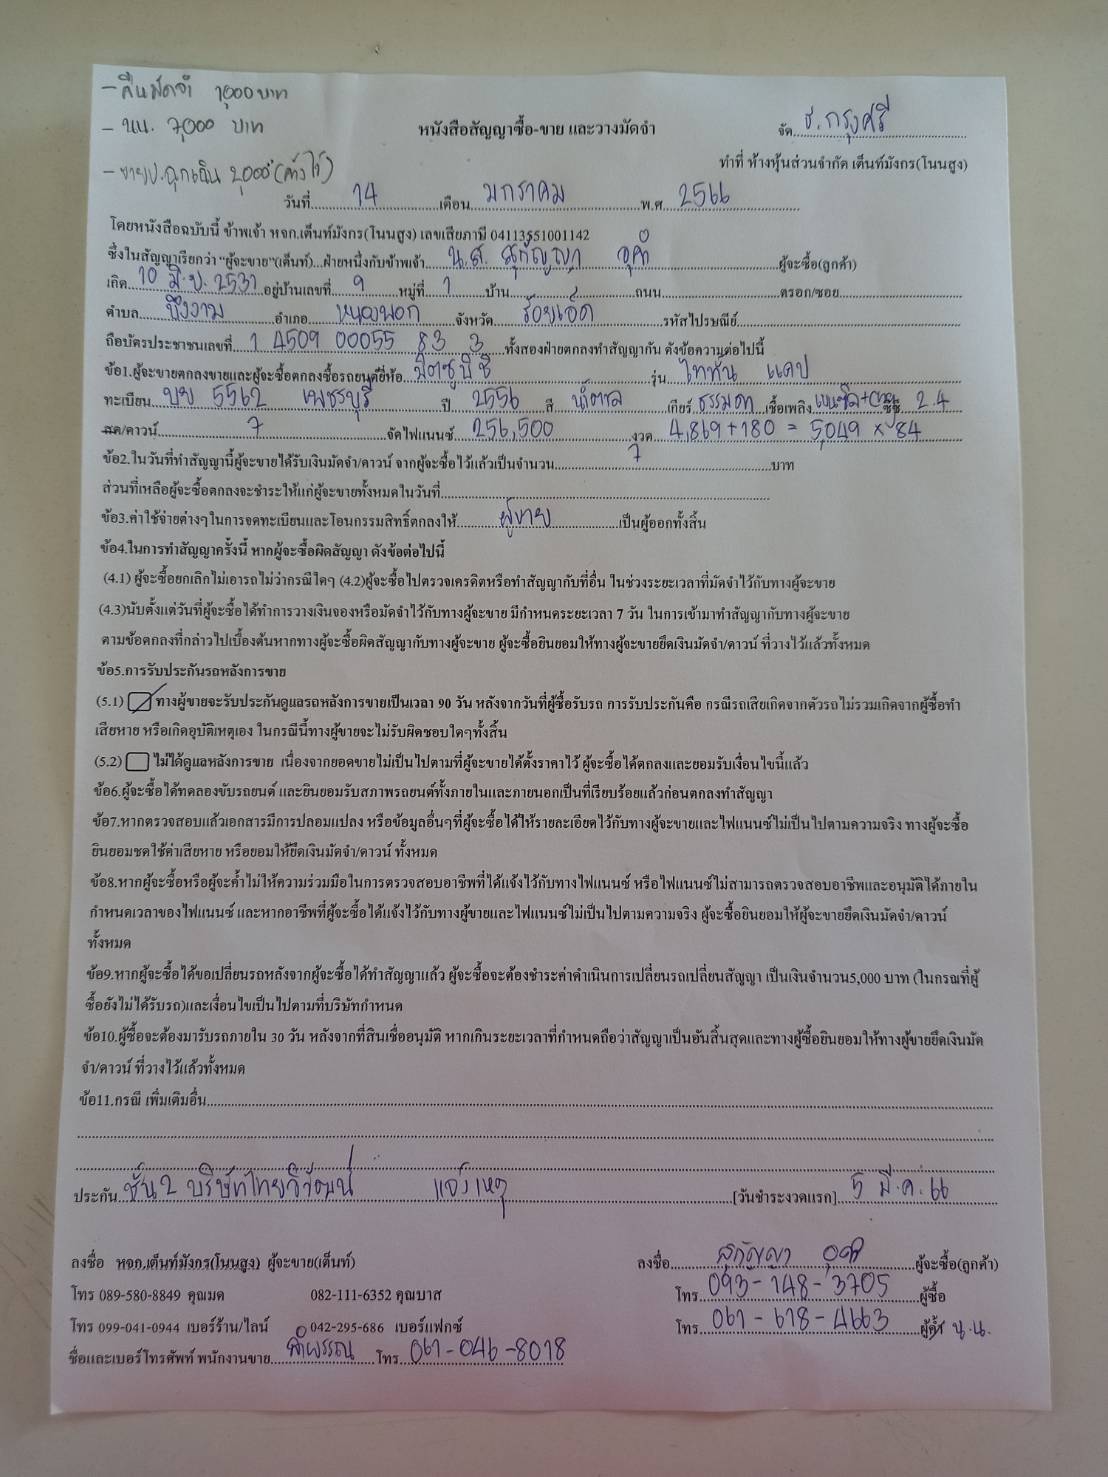 - คืนมัดจำ 1,000 บาท
- นน. 7,000 บาท
หนังสือสัญญาซื้อ-ขาย และวางมัดจำ
จัด ธ.กรุงศรี
ทำที่ ห้างหุ้นส่วนจำกัด เต็นท์มังกร(โนนสูง)
ฉุกเฉิน 2,000 (ค้างไว้)
วันที่ 14 เดือน มกราคม พ.ศ 2566
โดยหนังสือฉบับนี้ ข้าพเจ้า หจก.เต็นท์มังกร(โนนสูง) เลขเสียภาษี 04113551001142
ซึ่งในสัญญาเรียกว่า "ผู้จะขาย"(เต็นท์)...ฝ่ายหนึ่งกับข้าพเจ้า น.ส. สุกัญญา ผู้จะซื้อ(ลูกค้า)
เกิด 10 มิ.ย. 2531 อยู่บ้านเลขที่ 9 หมู่ที่ 1 บ้าน ถนน ตรอก/ซอย
ตำบล บึงงาม อำเภอ หนองพอก จังหวัด ร้อยเอ็ด รหัสไปรษณีย์
ถือบัตรประชาชนเลขที่ 1 4509 00055 83 3 ทั้งสองฝ่ายตกลงทำสัญญากัน ดังข้อความต่อไปนี้
ข้อ1.ผู้จะขายตกลงขายและผู้จะซื้อตกลงซื้อรถยนต์ยี่ห้อ มิตซูบิชิ รุ่น ไททัน แคป
ทะเบียน บย 5562 เพชรบุรี ปี 2556 สี น้ำตาล เกียร์ ธรรมดา เชื้อเพลิง เบนซิล+ ซีซี 2.4
สด/ดาวน์ 7 จัดไฟแนนซ์ 256,500 งวด 4,869+180 = 5,049 x 84
ข้อ2.ในวันที่ทำสัญญานี้ผู้จะขายได้รับเงินมัดจำ/ดาวน์ จากผู้จะซื้อไว้แล้วเป็นจำนวน 7 บาท
ส่วนที่เหลือผู้จะซื้อตกลงจะชำระให้แก่ผู้จะขายทั้งหมดในวันที่
ข้อ3.ค่าใช้จ่ายต่างๆในการจดทะเบียนและโอนกรรมสิทธิ์ตกลงให้ ผู้ขาย เป็นผู้ออกทั้งสิ้น
ข้อ4.ในการทำสัญญาครั้งนี้ หากผู้จะซื้อผิดสัญญา ดังข้อต่อไปนี้
(4.1) ผู้จะซื้อยกเลิกไม่เอารถไม่ว่ากรณีใดๆ (4.2)ผู้จะซื้อไปตรวจเครดิตหรือทำสัญญากับที่อื่น ในช่วงระยะเวลาที่มัดจำไว้กับทางผู้จะขาย
(4.3)นับตั้งแต่วันที่ผู้จะซื้อได้ทำการวางเงินจองหรือมัดจำไว้กับทางผู้จะขาย มีกำหนดระยะเวลา 7 วัน ในการเข้ามาทำสัญญากับทางผู้จะขาย
ตามข้อตกลงที่กล่าวไปเบื้องต้นหากทางผู้จะซื้อผิดสัญญากับทางผู้จะขาย ผู้จะซื้อยินยอมให้ทางผู้จะขายยึดเงินมัดจำ/ดาวน์ ที่วางไว้แล้วทั้งหมด
ข้อ5.การรับประกันรถหลังการขาย
(5.1) ทางผู้ขายจะรับประกันดูแลรถหลังการขายเป็นเวลา 90 วัน หลังจากวันที่ผู้ซื้อรับรถ การรับประกันคือ กรณีรถเสียเกิดจากตัวรถไม่รวมเกิดจากผู้ซื้อทำ
เสียหาย หรือเกิดอุบัติเหตุเอง ในกรณีนี้ทางผู้ขายจะไม่รับผิดชอบใดๆทั้งสิ้น
(5.2) ไม่ได้ดูแลหลังการขาย เนื่องจากยอดขายไม่เป็นไปตามที่ผู้จะขายได้ตั้งราคาไว้ ผู้จะซื้อได้ตกลงและยอมรับเงื่อนไขนี้แล้ว
ข้อ6.ผู้จะซื้อได้ทดลองขับรถยนต์ และยินยอมรับสภาพรถยนต์ทั้งภายในและภายนอกเป็นที่เรียบร้อยแล้วก่อนตกลงทำสัญญา
ข้อ7.หากตรวจสอบแล้วเอกสารมีการปลอมแปลง หรือข้อมูลอื่นๆที่ผู้จะซื้อได้ให้รายละเอียดไว้กับทางผู้จะขายและไฟแนนซ์ไม่เป็นไปตามความจริง ทางผู้จะซื้อ
ยินยอมชดใช้ค่าเสียหาย หรือยอมให้ยึดเงินมัดจำ/ดาวน์ ทั้งหมด
ข้อ8.หากผู้จะซื้อหรือผู้จะค้ำไม่ให้ความร่วมมือในการตรวจสอบอาชีพที่ได้แจ้งไว้กับทางไฟแนนซ์ หรือไฟแนนซ์ไม่สามารถตรวจสอบอาชีพและอนุมัติได้ภายใน
กำหนดเวลาของไฟแนนซ์ และหากอาชีพที่ผู้จะซื้อได้แจ้งไว้กับทางผู้ขายและไฟแนนซ์ไม่เป็นไปตามความจริง ผู้จะซื้อยินยอมให้ผู้จะขายยึดเงินมัดจำ/ดาวน์
ทั้งหมด
ข้อ9.หากผู้จะซื้อได้ขอเปลี่ยนรถหลังจากผู้จะซื้อได้ทำสัญญาแล้ว ผู้จะซื้อจะต้องชำระค่าดำเนินการเปลี่ยนรถเปลี่ยนสัญญา เป็นเงินจำนวน5,000 บาท (ในกรณที่ผู้
ซื้อยังไม่ได้รับรถ)และเงื่อนไขเป็นไปตามที่บริษัทกำหนด
ข้อ10.ผู้ซื้อจะต้องมารับรถภายใน 30 วัน หลังจากที่สินเชื่ออนุมัติ หากเกินระยะเวลาที่กำหนดถือว่าสัญญาเป็นอันสิ้นสุดและทางผู้ซื้อยินยอมให้ทางผู้ขายยึดเงินมัด
จำ/ดาวน์ ที่วางไว้แล้วทั้งหมด
ข้อ11.กรณี เพิ่มเติมอื่น
ประกัน ชั้น2 บริษัทไทยวิวัฒน์ แจ้งเหตุ [วันชำระงวดแรก] 5 มี.ค. 66
ลงชื่อ หจก.เต็นท์มังกร(โนนสูง) ผู้จะขาย(เต็นท์) ลงชื่อ สุกัญญา ผู้จะซื้อ(ลูกค้า)
โทร 089-580-8849 คุณมด 082-111-6352 คุณบาส โทร 093-148-3705 ผู้ซื้อ
โทร 099-041-0944 เบอร์ร้าน/ไลน์ 042-295-686 เบอร์แฟกซ์ โทร 061-618-4663 ผู้ค้ำ น.น.
ชื่อและเบอร์โทรศัพท์ พนักงานขาย ลำพรรณ โทร 061-046-8018